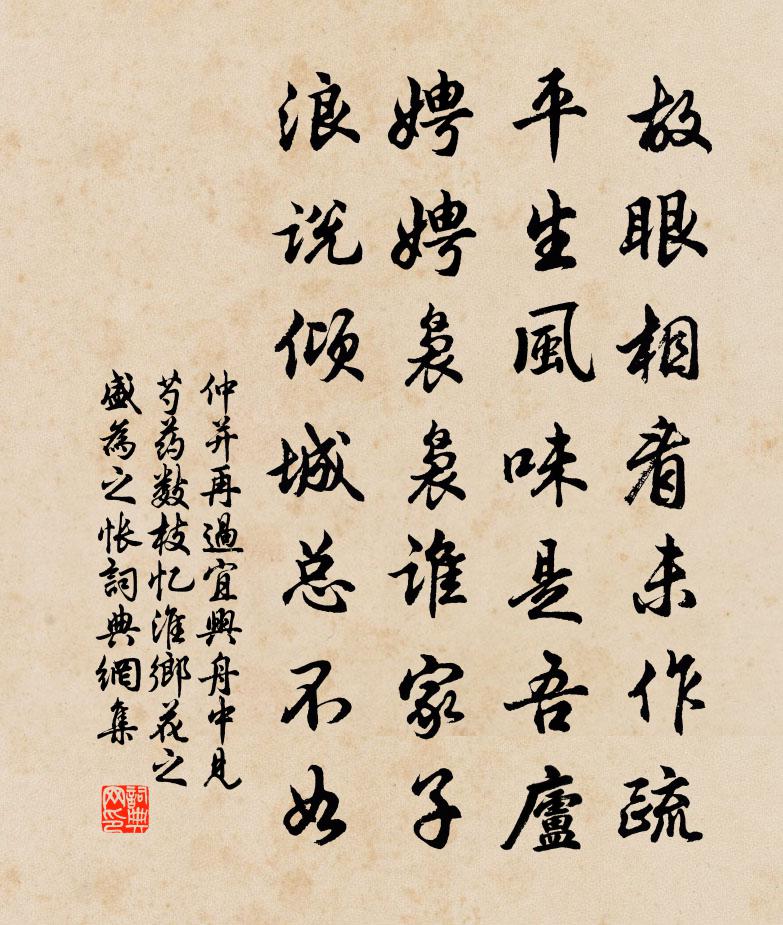 放眼相看未作疏
平生風味是吾廬
娉娉裊裊谁家子
浪说倾城总不如
仲并再過宜興舟中見
芍药数枝忆淮鄉花之
盛為之怅詞典網集
詞典网印